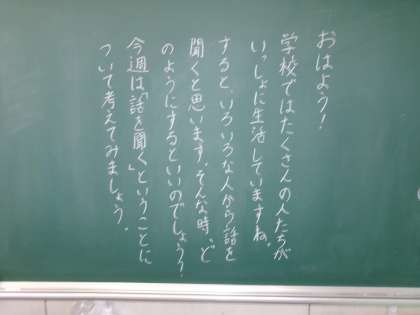 おはよう！
学校ではたくさんの人たちが
いっしょに生活していますね。
すると、いろいろな人から話を
聞くと思います。そんな時、ど
のようにするといいのでしょう？
今週は「話を聞く」ということに
ついて考えてみましょう。